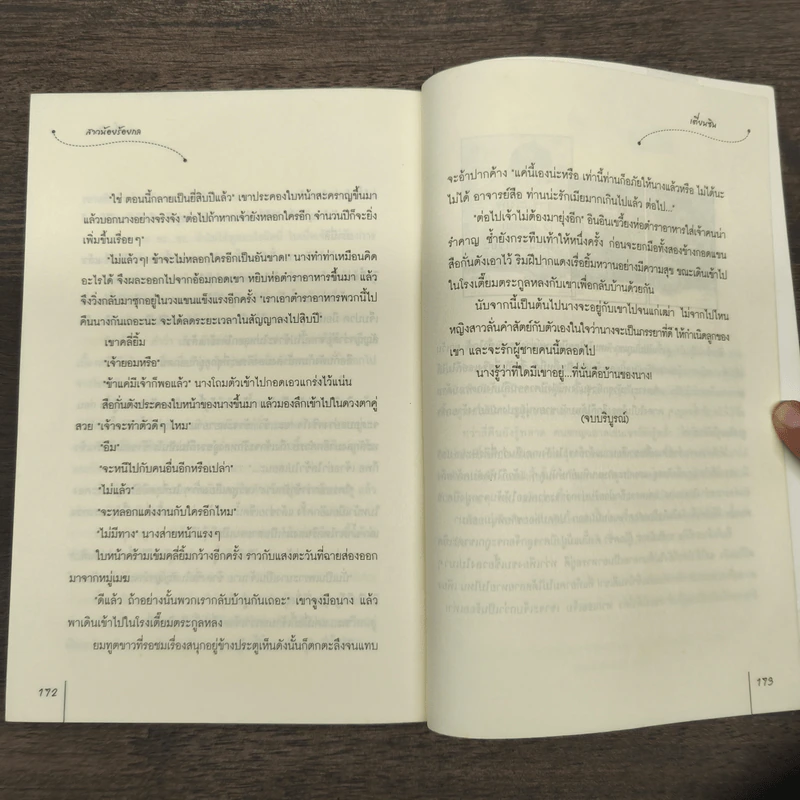 สาวน้อยร้อยกล
"ใช่ ตอนนี้กลายเป็นยี่สิบปีแล้ว" เขาประคองใบหน้าสะคราญขึ้นมา
แล้วบอกนางอย่างจริงจัง "ต่อไปถ้าหากเจ้ายังหลอกใครอีก จำนวนปีก็จะยิ่ง
เพิ่มขึ้นเรื่อยๆ"
"ไม่แล้วๆ! ข้าจะไม่หลอกใครอีกเป็นอันขาด!" นางทำท่าเหมือนคิด
อะไรได้ จึงผละออกไปจากอ้อมกอดเขา หยิบห่อตำราอาหารขึ้นมา แล้ว
จึงวิ่งกลับมาซุกอยู่ในวงแขนแข็งแรงอีกครั้ง "เราเอาตำราอาหารพวกนี้ไป
คืนนางกันเถอะนะ จะได้ลดระยะเวลาในสัญญาลงไปสิบปี"
เขาคลี่ยิ้ม
"เจ้ายอมหรือ"
"ข้าแค่มีเจ้าก็พอแล้ว" นางโถมตัวเข้าไปกอดเอวแกร่งไว้แน่น
สือกั่นตังประคองใบหน้าของนางขึ้นมา แล้วมองลึกเข้าไปในดวงตาคู่
สวย "เจ้าจะทำตัวดีๆ ไหม"
"อืม"
"จะหนีไปกับคนอื่นอีกหรือเปล่า"
"ไม่แล้ว"
"จะหลอกแต่งงานกับใครอีกไหม"
"ไม่มีทาง" นางส่ายหน้าแรงๆ
ใบหน้าคร้ามเข้มคลี่ยิ้มกว้างอีกครั้ง ราวกับแสงตะวันที่ฉายส่องออก
มาจากหมู่เมฆ
"ดีแล้ว ถ้าอย่างนั้นพวกเรากลับบ้านกันเถอะ" เขาจูงมือนาง แล้ว
พาเดินเข้าไปในโรงเตี๊ยมตระกูลหลง
ยมทูตขาวที่รอชมเรื่องสนุกอยู่ข้างประตูเห็นดังนั้นก็ตกตะลึงจนแทบ
172
เตี่ยนซิน
จะอ้าปากค้าง "แค่นี้เองน่ะหรือ เท่านี้ท่านก็อภัยให้นางแล้วหรือ ไม่ได้นะ
ไม่ได้ อาจารย์สือ ท่านน่ะรักเมียมากเกินไปแล้ว ต่อไป..."
"ต่อไปเจ้าไม่ต้องมายุ่งอีก" อินอินเขวี้ยงห่อตำราอาหารใส่เจ้าคนน่า
รำคาญ ซ้ำยังกระทืบเท้าให้หนึ่งครั้ง ก่อนจะยกมือทั้งสองข้างกอดแขน
สือกั่นตังเอาไว้ ริมฝีปากแดงเรื่อยิ้มหวานอย่างมีความสุข ขณะเดินเข้าไป
ในโรงเตี๊ยมตระกูลหลงกับเขาเพื่อกลับบ้านด้วยกัน
นับจากนี้เป็นต้นไปนางจะอยู่กับเขาไปจนแก่เฒ่า ไม่จากไปไหน
หญิงสาวลั่นคำสัตย์กับตัวเองในใจว่านางจะเป็นภรรยาที่ดี ให้กำเนิดลูกของ
เขา และจะรักผู้ชายคนนี้ตลอดไป
นางรู้ว่าที่ใดมีเขาอยู่...ที่นั่นคือบ้านของนาง!
(จบบริบูรณ์)
173